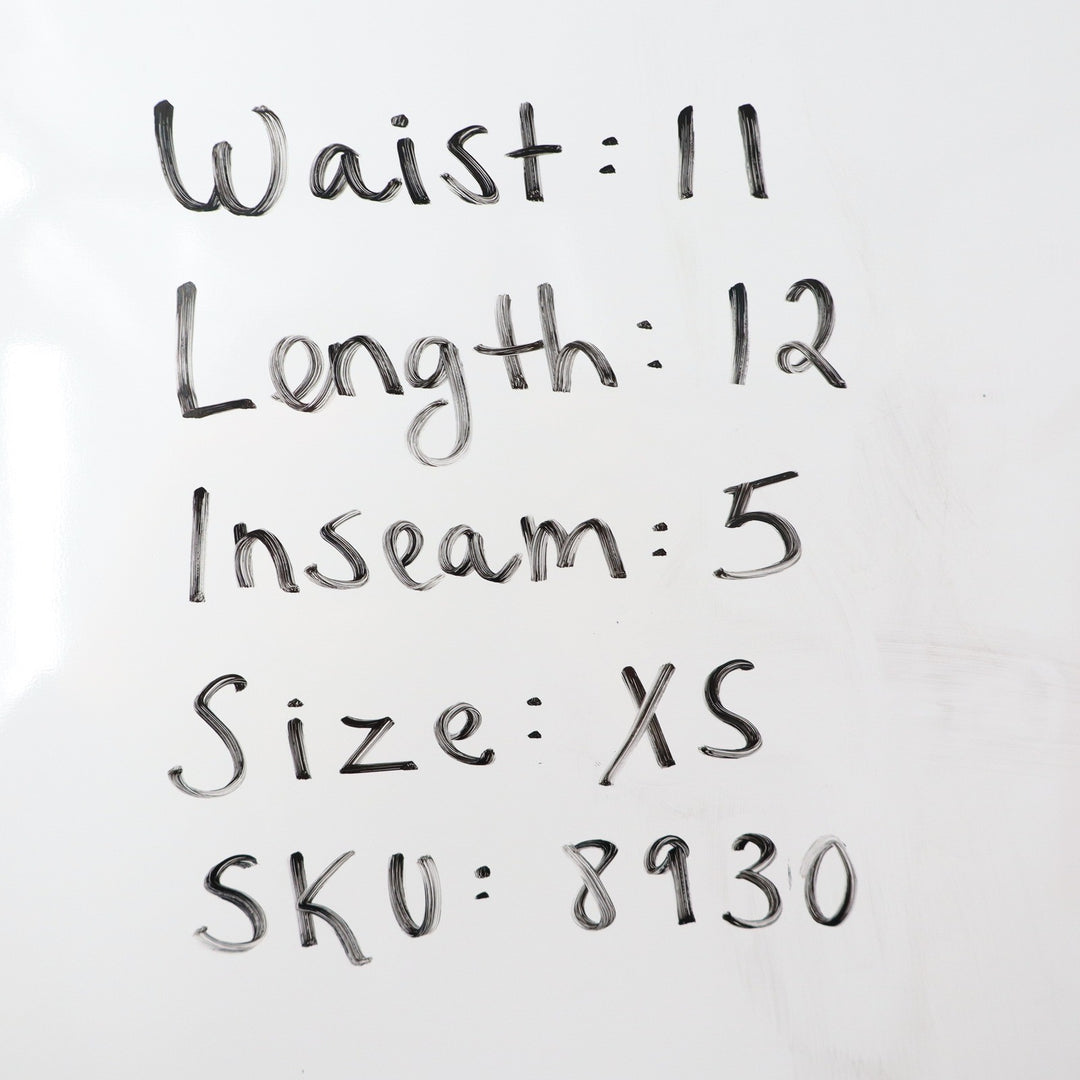 Waist: 11
Length: 12
Inseam: 5
Size: XS
SKU: 8930